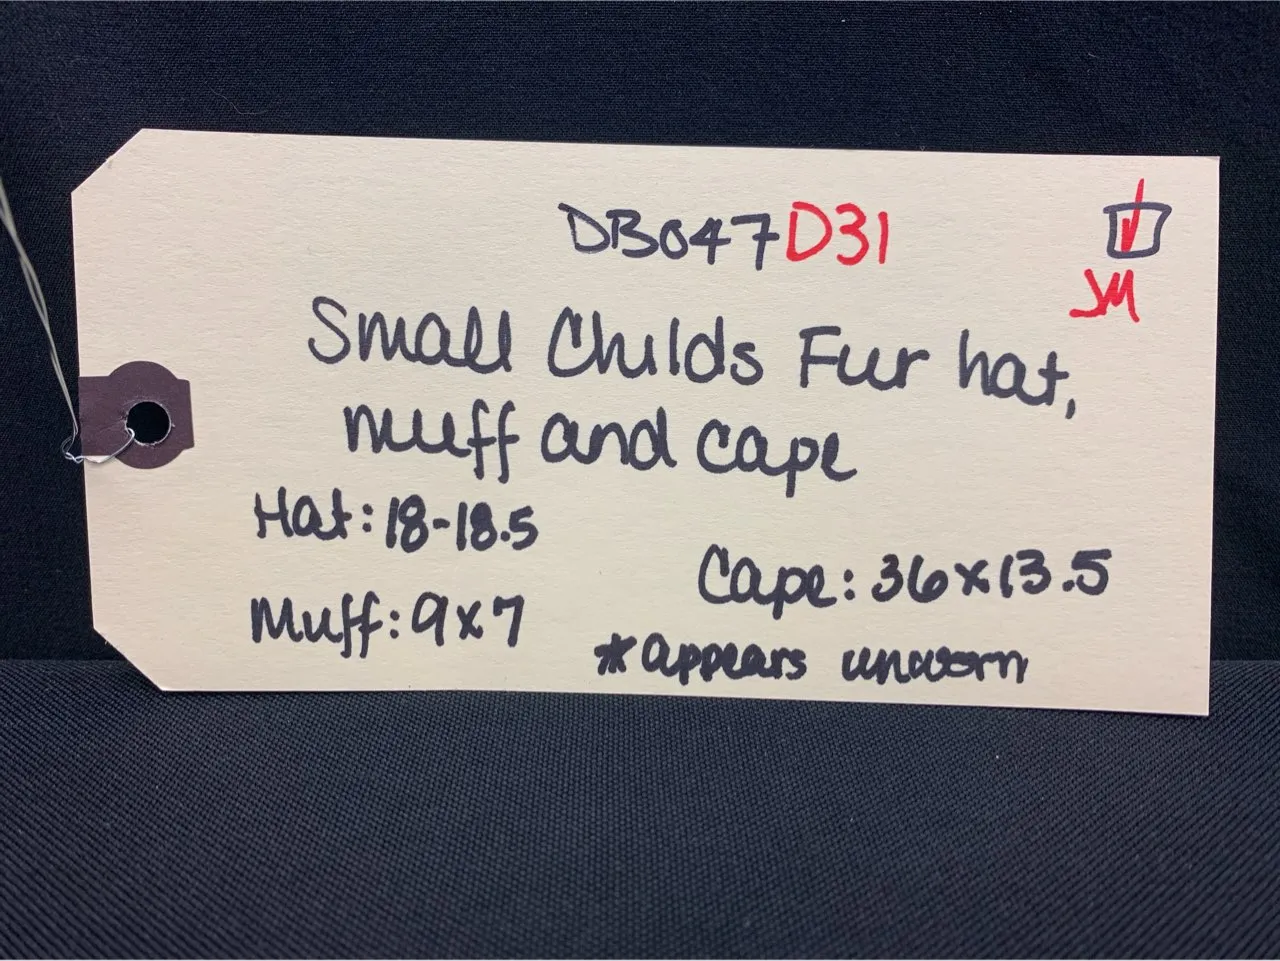 DB047D31
JM
Small Childs Fur hat,
muff and cape
Hat: 18-18.5
Cape: 36x13.5
Muff: 9x7
*appears unworn